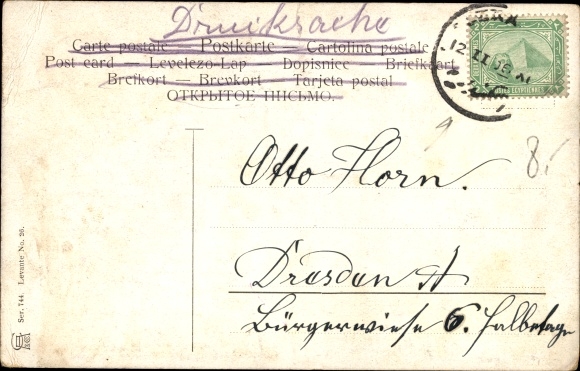 Drucksache
Carte postale — Postkarte — Cartolina postale
Post card — Levelezo-Lap — Dopisnice — Briefkaart
Brefkort — Brevkort — Tarjeta postal
ОТКРЫТОЕ ПИСЬМО.
12 II
8.-
Otto Horn.
Dresden A
Bürgerwiese 6. Halbetage
Ser. 744. Levante No. 26.